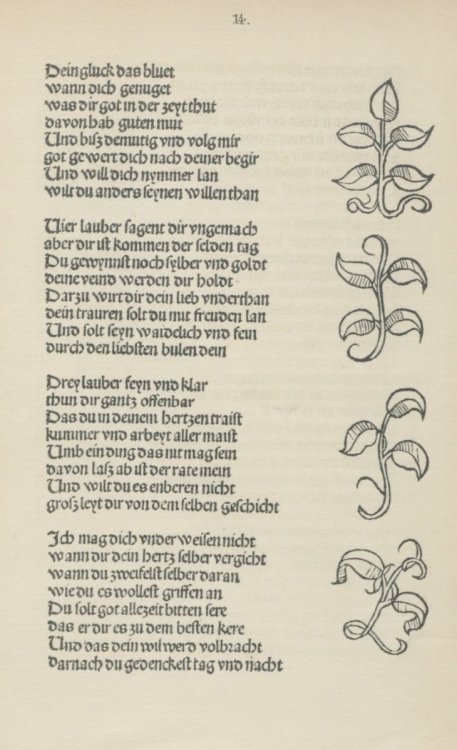 14.
Dein gluck das bluet
wann dich genuget
was dir got in der zeyt thut
davon hab guten mut
Und bisz demutig vnd volg mir
got gewert dich nach deiner begir
Und will dich nymmer lan
wilt du anders seynen willen than
Uier lauber sagent dir vngemach
aber dir ist kommen der selden tag
Du gewynnst noch sylber vnd goldt
deine veind werden dir holdt
Darzu wirt dir dein lieb vnderthan
dein trauren solt du mit freuden lan
Und solt seyn waidelich vnd fein
durch den liebsten bulen dein
Drey lauber feyn vnd klar
thun dir gantz offenbar
Das du in deinem hertzen traist
kummer vnd arbeyt aller maist
Umb ein ding das nit mag sein
davon lasz ab ist der rate mein
Und wilt du es enberen nicht
grosz leyt dir von dem selben geschicht
Ich mag dich vnderweisen nicht
wann dir dein hertz selber vergicht
wann du zweifelst selber daran
wie du es wollest griffen an
Du solt got allezeit bitten sere
das er dir es zu dem besten kere
Und das dein wil werd volbracht
darnach du gedenckest tag vnd nacht